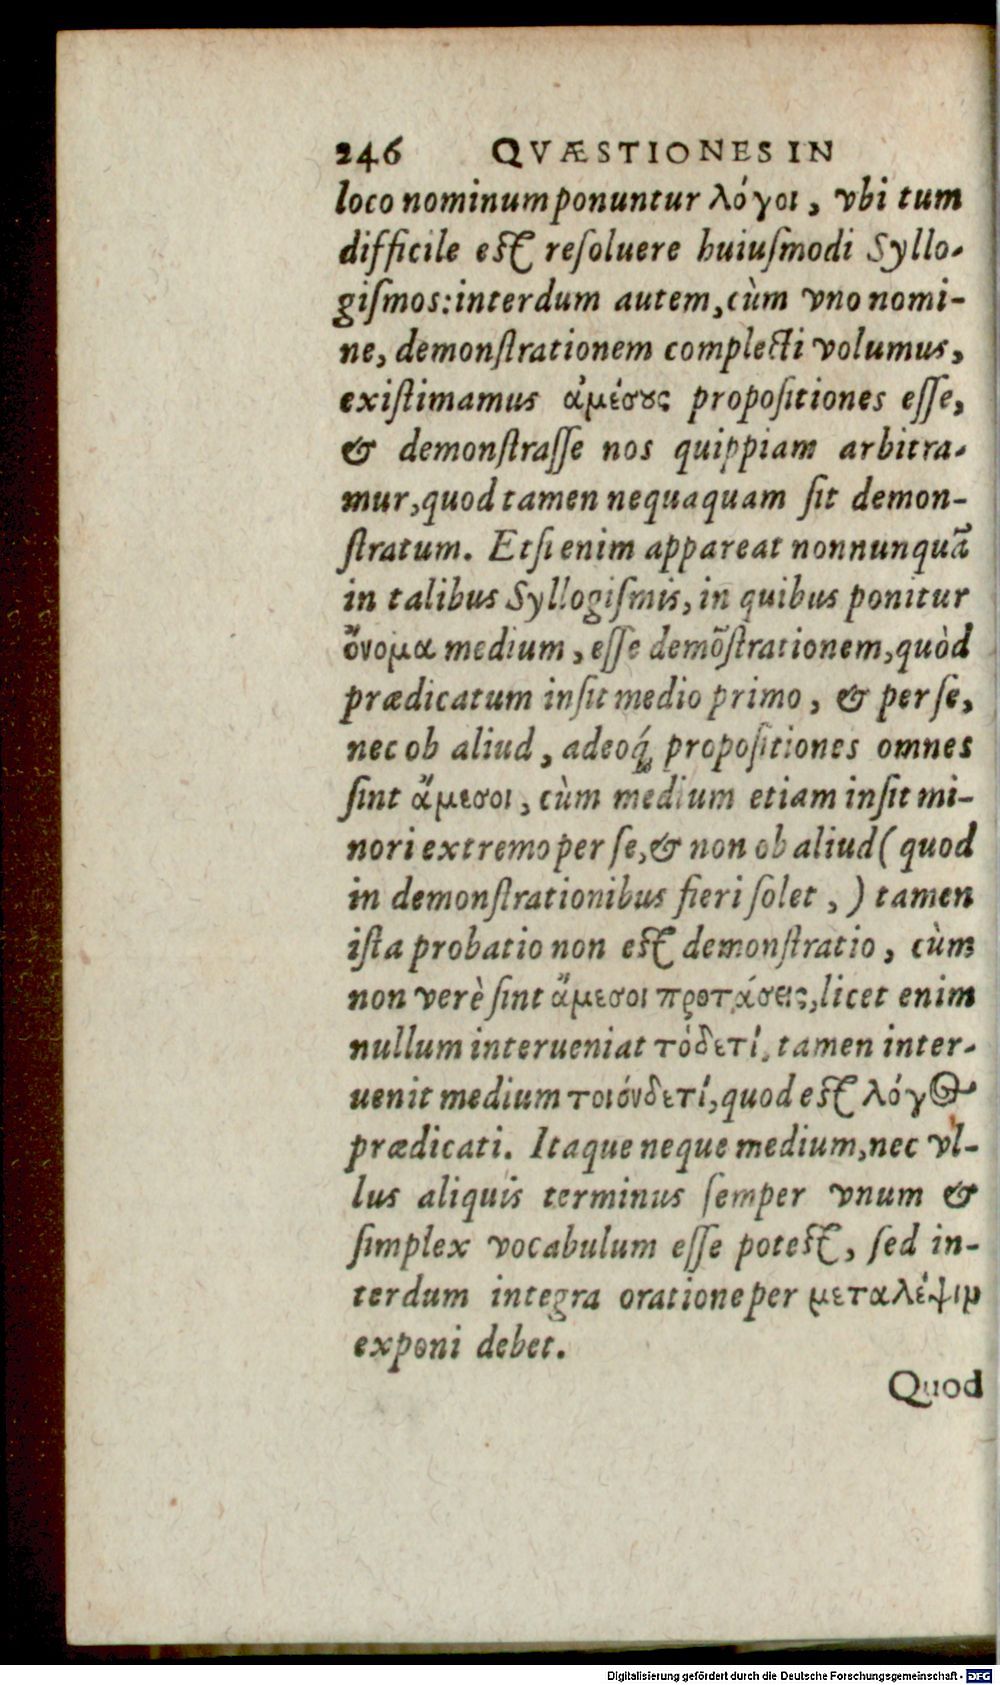 246 QVÆSTIONES IN
loco nominum ponuntur λόγοι, vbi tum
difficile est resoluere huiuſmodi Syllo-
giſmos: interdum autem, cùm vno nomi-
ne, demonſtrationem complecti volumus,
exiſtimamus ἀμέσȣς propoſitiones eſſe,
& demonſtraſſe nos quippiam arbitra-
mur, quod tamen nequaquam ſit demon-
ſtratum. Etſi enim appareat nonnunquã
in talibus Syllogiſmis, in quibus ponitur
ὄνομα medium, eſſe demõſtrationem, quòd
prædicatum inſit medio primo, & per ſe,
nec ob aliud, adeoq́; propoſitiones omnes
ſint ἄμεσοι, cùm medium etiam inſit mi-
nori extremo per ſe, & non ob aliud (quod
in demonſtrationibus fieri ſolet,) tamen
iſta probatio non est demonſtratio, cùm
non verè ſint ἄμεσοι προτάσεις, licet enim
nullum interueniat τόδετί, tamen inter-
uenit medium τοιόνδετί, quod est λόγος
prædicati. Itaque neque medium, nec vl-
lus aliquis terminus ſemper vnum &
ſimplex vocabulum eſſe potest, ſed in-
terdum integra oratione per μεταλέψιν
exponi debet.
Quod
Digitalisierung gefördert durch die Deutsche Forschungsgemeinschaft - DFG